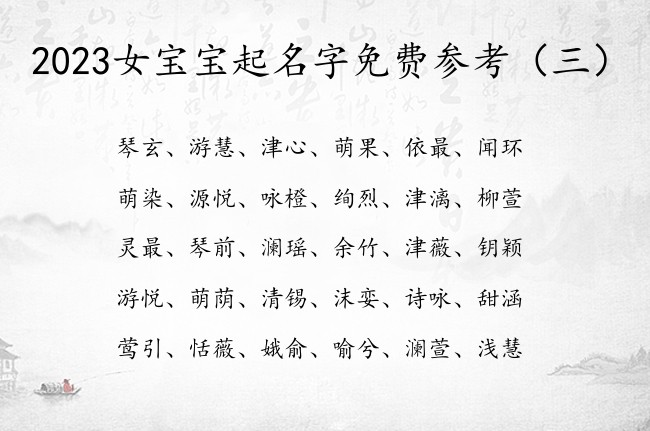 2023女宝宝起名字免费参考（三）
琴玄、游慧、津心、萌果、依最、闻环
萌染、源悦、咏橙、绚烈、津漓、柳萱
灵最、琴前、澜瑶、余竹、津薇、钥颖
游悦、萌荫、清锡、沫娈、诗咏、甜涵
莺引、恬薇、娥俞、喻兮、澜萱、浅慧